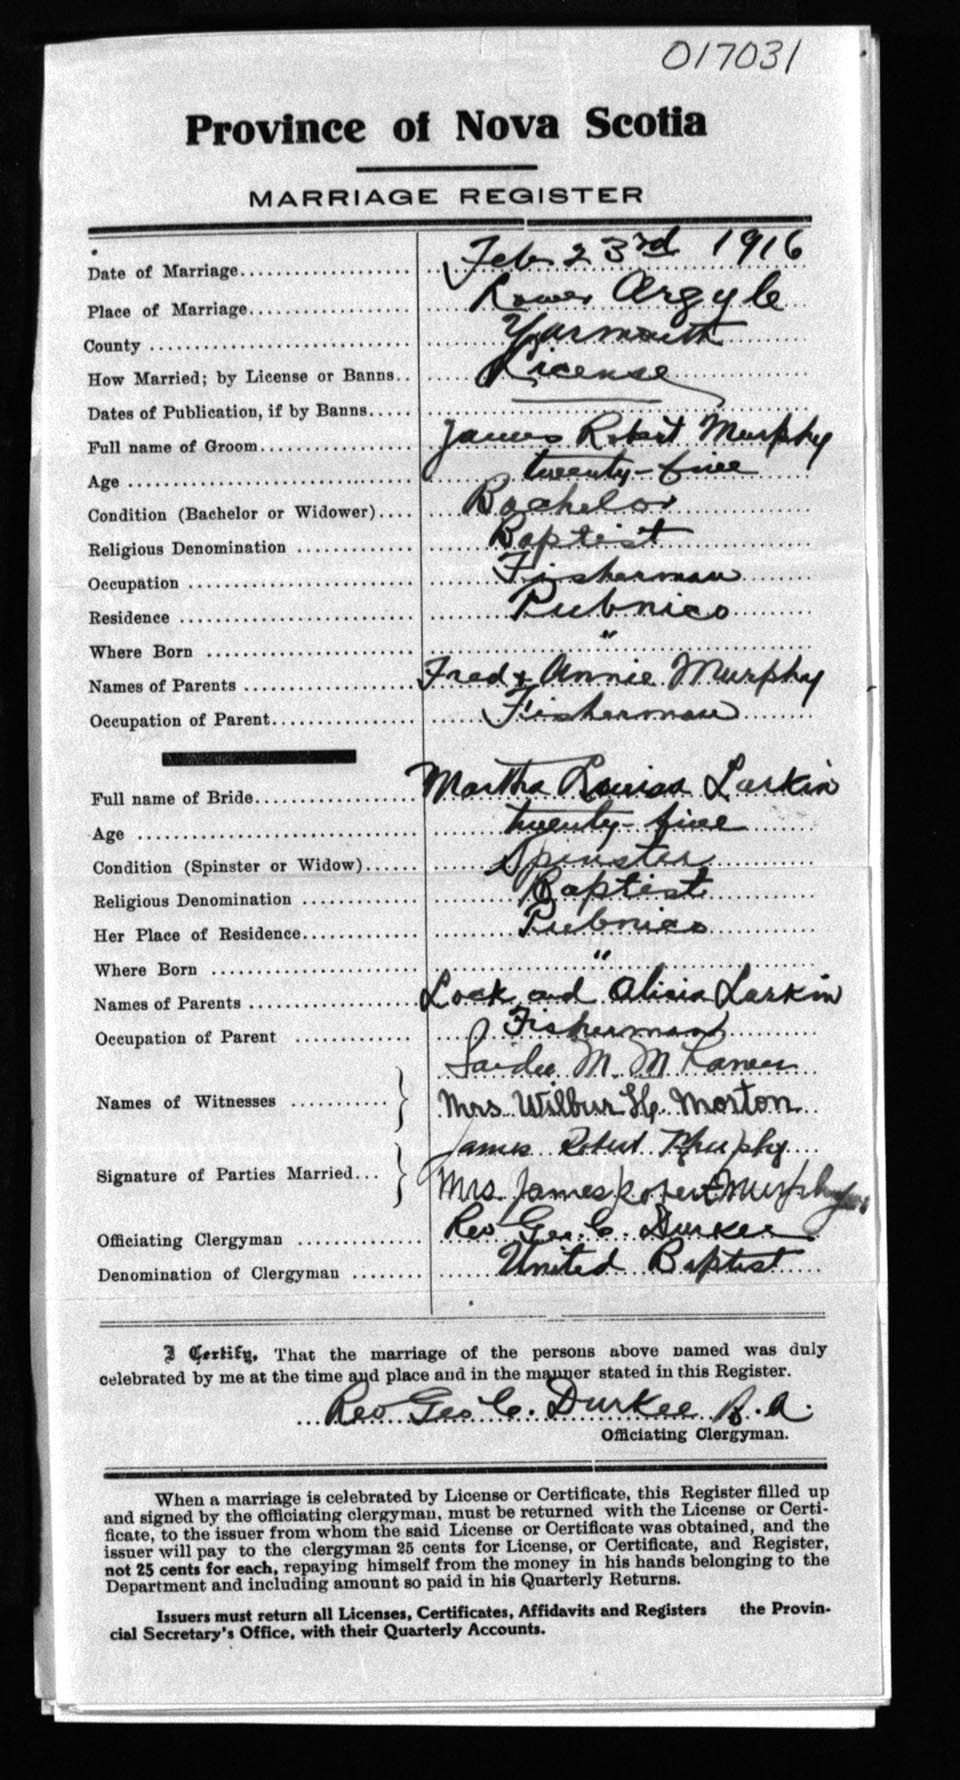 017031
Province of Nova Scotia
MARRIAGE REGISTER
Date of Marriage Feb 23rd 1916
Place of Marriage Lower Argyle
County Yarmouth
How Married; by License or Banns License
Dates of Publication, if by Banns
Full name of Groom James Robert Murphy
Age twenty-five
Condition (Bachelor or Widower) Bachelor
Religious Denomination Baptist
Occupation Fisherman
Residence Pubnico
Where Born "
Names of Parents Fred & Annie Murphy
Occupation of Parent Fisherman
Full name of Bride Martha Louisa Larkin
Age twenty-five
Condition (Spinster or Widow) Spinster
Religious Denomination Baptist
Her Place of Residence Pubnico
Where Born "
Names of Parents Lock and Alisia Larkin
Occupation of Parent Fisherman
M. M
Names of Witnesses Mrs. Wilbur H. Morton
James Robert Murphy
Signature of Parties Married Mrs. James Robert Murphy
Officiating Clergyman Rev Geo. C. Durkee
Denomination of Clergyman United Baptist
I Certify, That the marriage of the persons above named was duly
celebrated by me at the time and place and in the manner stated in this Register.
Rev Geo C. Durkee B.A.
Officiating Clergyman.
When a marriage is celebrated by License or Certificate, this Register filled up
and signed by the officiating clergyman, must be returned with the License or Certi-
ficate, to the issuer from whom the said License or Certificate was obtained, and the
issuer will pay to the clergyman 25 cents for License, or Certificate, and Register,
not 25 cents for each, repaying himself from the money in his hands belonging to the
Department and including amount so paid in his Quarterly Returns.
Issuers must return all Licenses, Certificates, Affidavits and Registers the Provin-
cial Secretary's Office, with their Quarterly Accounts.